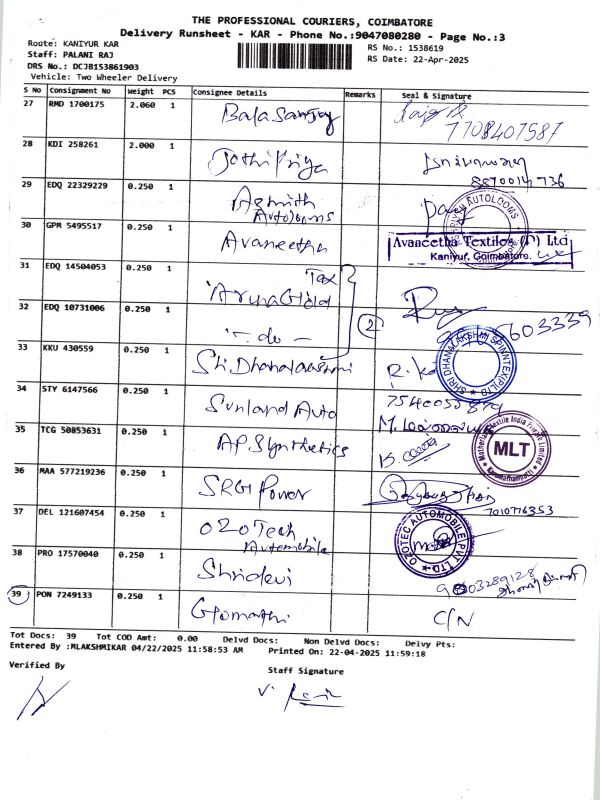 THE PROFESSIONAL COURIERS, COIMBATORE
Delivery Runsheet - KAR - Phone No.:9047080280 - Page No.:3
Route: KANIYUR KAR
Staff: PALANI RAJ
DRS No.: DCJB153861903
Vehicle: Two Wheeler Delivery
RS No.: 1538619
RS Date: 22-Apr-2025
S No Consignment No Weight PCS Consignee Details Remarks Seal & Signature
27 RMD 1700175 2.060 1 Bala Sanjay
7708407587
28 KDI 258261 2.000 1 Jothi Priya
29 EDQ 22329229 0.250 1 Agnith
Autolooms
AUTOLOOMS
30 GPM 5495517 0.250 1 Avaneetha
Avaneetha Textiles (P) Ltd
Kaniyur, Coimbatore.
31 EDQ 14504053 0.250 1 Tax
Aruna Gold
32 EDQ 10731006 0.250 1 - do -
2
603339
33 KKU 430559 0.250 1 Shi. Dhanalaashmi
SHRI DHANALAKSHMI SPINNTEX(P)LTD
34 STY 6147566 0.250 1 Sunland Auto
35 TCG 50853631 0.250 1 AP Synthetics
MLT
36 MAA 577219236 0.250 1 SRGI Power
7010776353
37 DEL 121607454 0.250 1 OZO Tech
Automobile
OZOTEC AUTOMOBILE PVT LTD
38 PRO 17570040 0.250 1 Shridevi
39 PON 7249133 0.250 1 Gomathi C/N
Tot Docs: 39 Tot COD Amt: 0.00 Delvd Docs: Non Delvd Docs: Delvy Pts:
Entered By :MLAKSHMIKAR 04/22/2025 11:58:53 AM Printed On: 22-04-2025 11:59:18
Verified By
Staff Signature